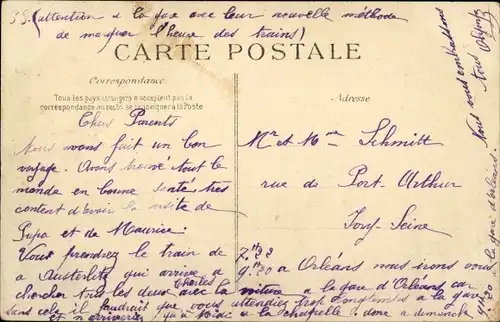 P.S. (attention à la gare avec leur nouvelle méthode
de marquer l'heure des trains)
CARTE POSTALE
Correspondance
Tous les pays étrangers n'acceptent pas la
correspondance au recto, se renseigner à la Poste
Adresse
Chers Parents
Nous avons fait un bon
voyage. Avons trouvé tout le
monde en bonne santé très
content d'avoir la visite de
Papa et de Maurice.
Vous prendrez le train de 7.H
a Austerlitz qui arrive a 9.H20 a Orléans nous irons vous
chercher tous les deux avec Charles la voiture a la gare d'Orléans car
sans cela il faudrait que vous attendiez trop longtemps a la gare
et n'arriverez qu'à midi a la chapelle, donc a dimanche
9.H20 la gare d'orléans. Nous vous embrassons
tous
Mr et Mme Schmitt
rue de Port-Arthur
Seine